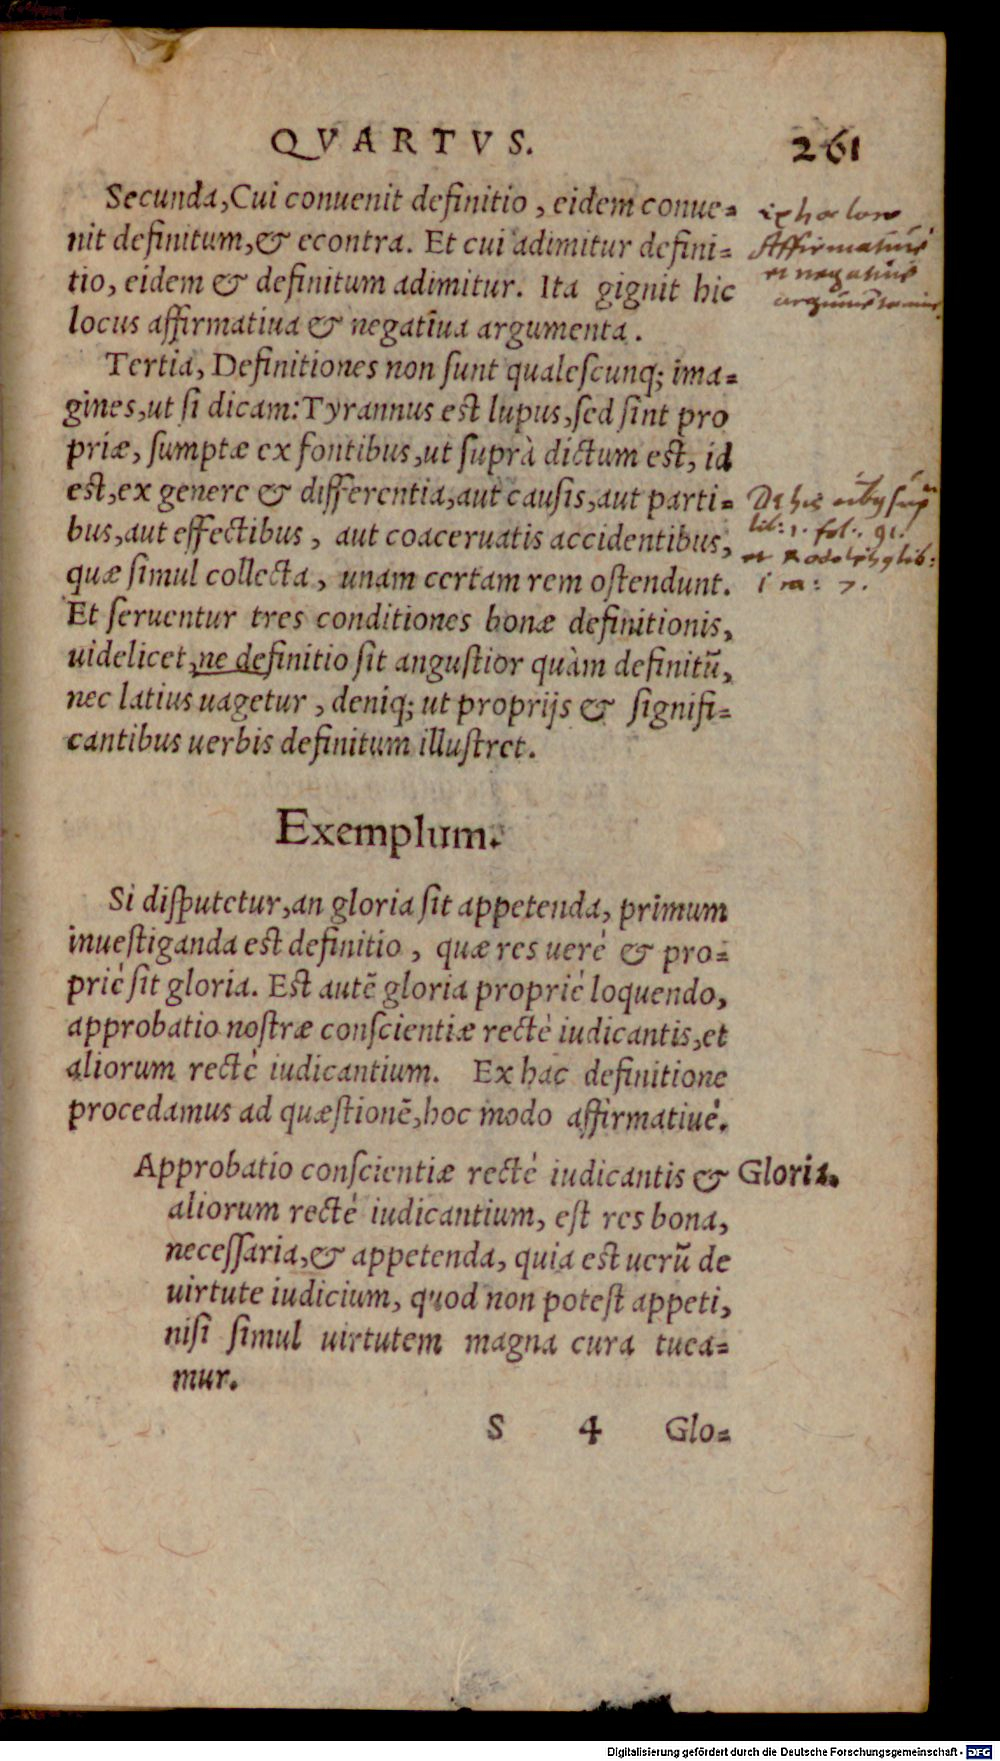 QVARTVS. 261
Secunda, Cui conuenit definitio, eidem conue=
nit definitum, & econtra. Et cui adimitur defini=
tio, eidem & definitum adimitur. Ita gignit hic
locus affirmatiua & negatiua argumenta.
Affirmatiue
et negatiue
Tertia, Definitiones non ſunt qualeſcunq; ima=
gines, ut ſi dicam: Tyrannus est lupus, ſed ſint pro
priæ, ſumptæ ex fontibus, ut ſuprà dictum est, id
est, ex genere & differentia, aut cauſis, aut parti=
bus, aut effectibus, aut coaceruatis accidentibus,
quæ ſimul collecta, unam certam rem oſtendunt.
Et ſeruentur tres conditiones bonæ definitionis,
uidelicet, ne definitio ſit anguſtior quàm definitū,
nec latius uagetur, deniq; ut proprijs & ſignifi=
cantibus uerbis definitum illuſtret.
De his
lib: 1. fol: 91.
Exemplum.
Si diſputetur, an gloria ſit appetenda, primum
inueſtiganda est definitio, quæ res uerè & pro=
priè ſit gloria. Est autē gloria propriè loquendo,
approbatio noſtræ conſcientiæ rectè iudicantis, et
aliorum rectè iudicantium. Ex hac definitione
procedamus ad quæſtionē, hoc modo affirmatiuè.
Approbatio conſcientiæ rectè iudicantis & Gloria.
aliorum rectè iudicantium, eſt res bona,
neceſſaria, & appetenda, quia est uerū de
uirtute iudicium, quod non poteſt appeti,
niſi ſimul uirtutem magna cura tuea=
mur.
S 4 Glo=
Digitalisierung gefördert durch die Deutsche Forschungsgemeinschaft - DFG